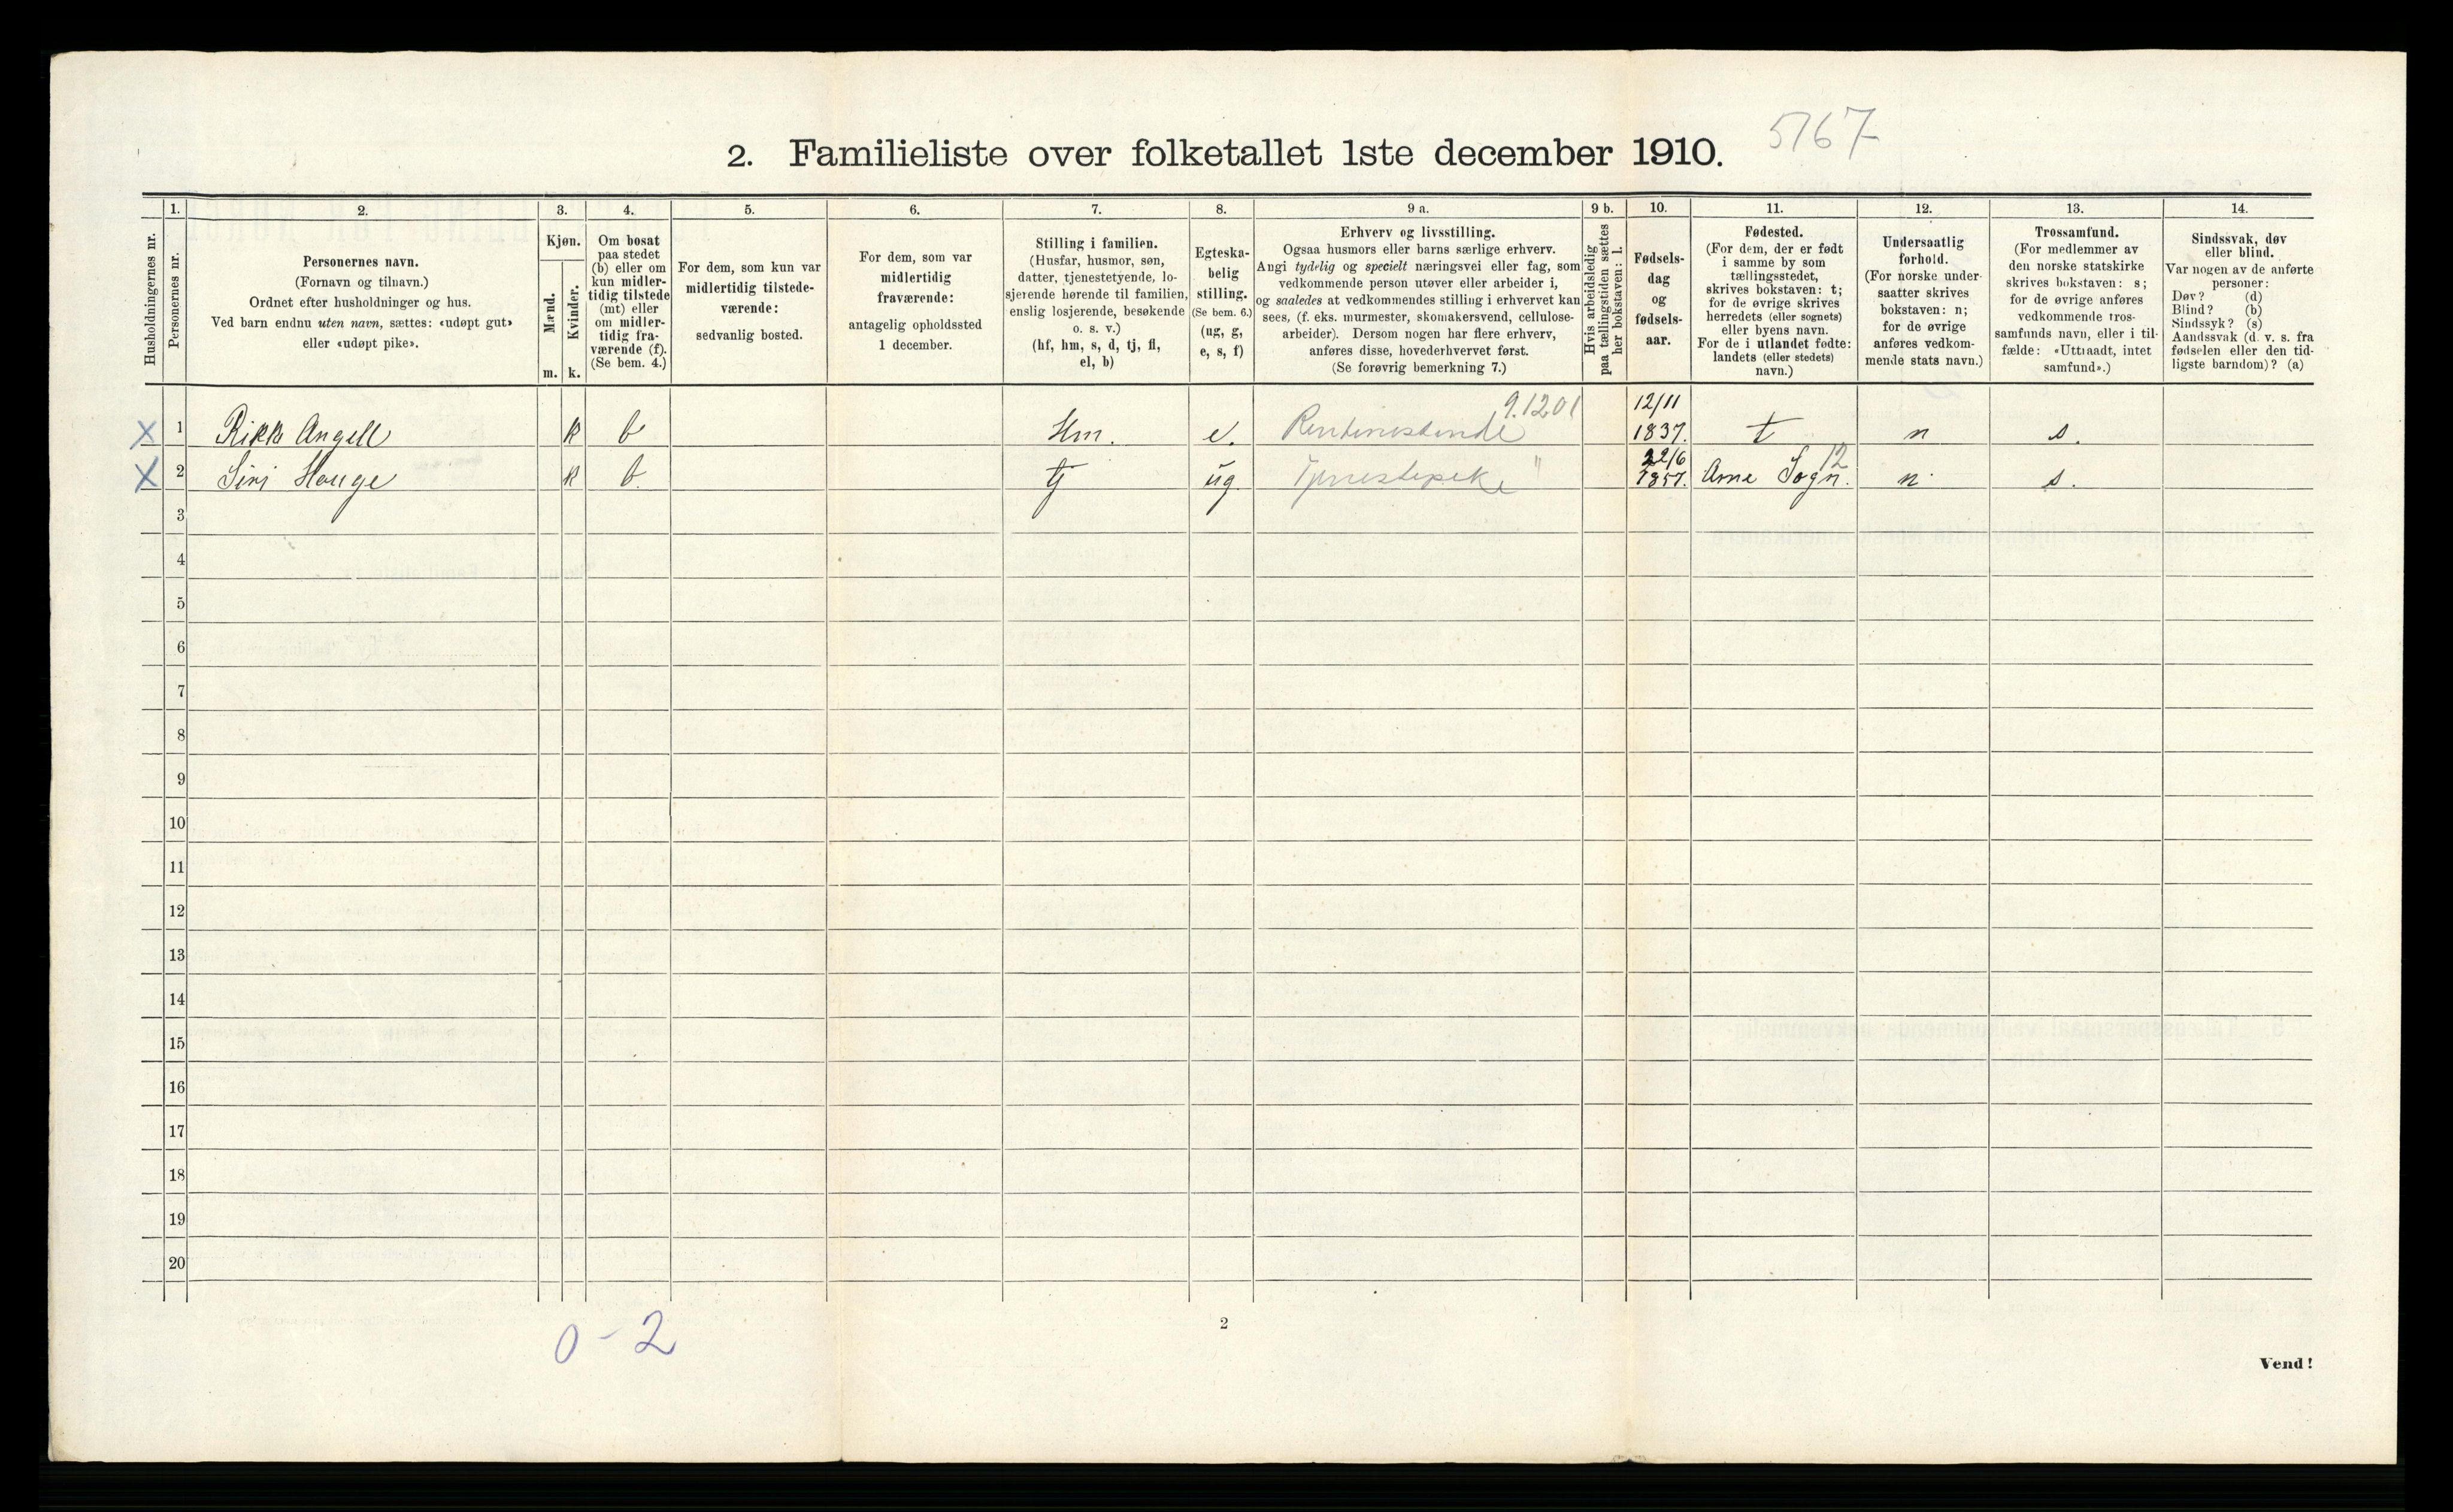 5167
2. Familieliste over folketallet 1ste december 1910.
1. 2. 3. 4. 5. 6. 7. 8. 9 a. 9 b. 10. 11. 12. 13. 14.
Husholdningernes nr.
Personernes nr.
Personernes navn.
(Fornavn og tilnavn.)
Ordnet efter husholdninger og hus.
Ved barn endnu uten navn, sættes: «udøpt gut»
eller «udøpt pike».
Kjøn.
Mænd.
Kvinder.
m. k.
Om bosat
paa stedet
(b) eller om
kun midler-
tidig tilstede
(mt) eller
om midler-
tidig fra-
værende (f).
(Se bem. 4.)
For dem, som kun var
midlertidig tilstede-
værende:
sedvanlig bosted.
For dem, som var
midlertidig
fraværende:
antagelig opholdssted
1 december.
Stilling i familien.
(Husfar, husmor, søn,
datter, tjenestetyende, lo-
sjerende hørende til familien,
enslig losjerende, besøkende
o. s. v.)
(hf, hm, s, d, tj, fl,
el, b)
Egteska-
belig
stilling.
(Se bem. 6.)
(ug, g,
e, s, f)
Erhverv og livsstilling.
Ogsaa husmors eller barns særlige erhverv.
Angi tydelig og specielt næringsvei eller fag, som
vedkommende person utøver eller arbeider i,
og saaledes at vedkommendes stilling i erhvervet kan
sees, (f. eks. murmester, skomakersvend, cellulose-
arbeider). Dersom nogen har flere erhverv,
anføres disse, hovederhvervet først.
(Se forøvrig bemerkning 7.)
Hvis arbeidsledig
paa tællingstiden sættes
her bokstaven: l.
Fødsels-
dag
og
fødsels-
aar.
Fødested.
(For dem, der er født
i samme by som
tællingsstedet,
skrives bokstaven: t;
for de øvrige skrives
herredets (eller sognets)
eller byens navn.
For de i utlandet fødte:
landets (eller stedets)
navn.)
Undersaatlig
forhold.
(For norske under-
saatter skrives
bokstaven: n;
for de øvrige
anføres vedkom-
mende stats navn.)
Trossamfund.
(For medlemmer av
den norske statskirke
skrives bokstaven: s;
for de øvrige anføres
vedkommende tros-
samfunds navn, eller i til-
fælde: «Uttraadt, intet
samfund».)
Sindssvak, døv
eller blind.
Var nogen av de anførte
personer:
Døv? (d)
Blind? (b)
Sindssyk? (s)
Aandssvak (d. v. s. fra
fødselen eller den tid-
ligste barndom)? (a)
9.1201 12/11
X 1 Rikke Angell k b Hm. e. Rentenistinde 1837. t n s.
22/6 12
X 2 Siri Houge k b tj ug. Tjenestepike " 1857. Arne Sogn. n. s.
3
4
5
6
7
8
9
10
11
12
13
14
15
16
17
18
19
20
0 - 2
2
Vend!